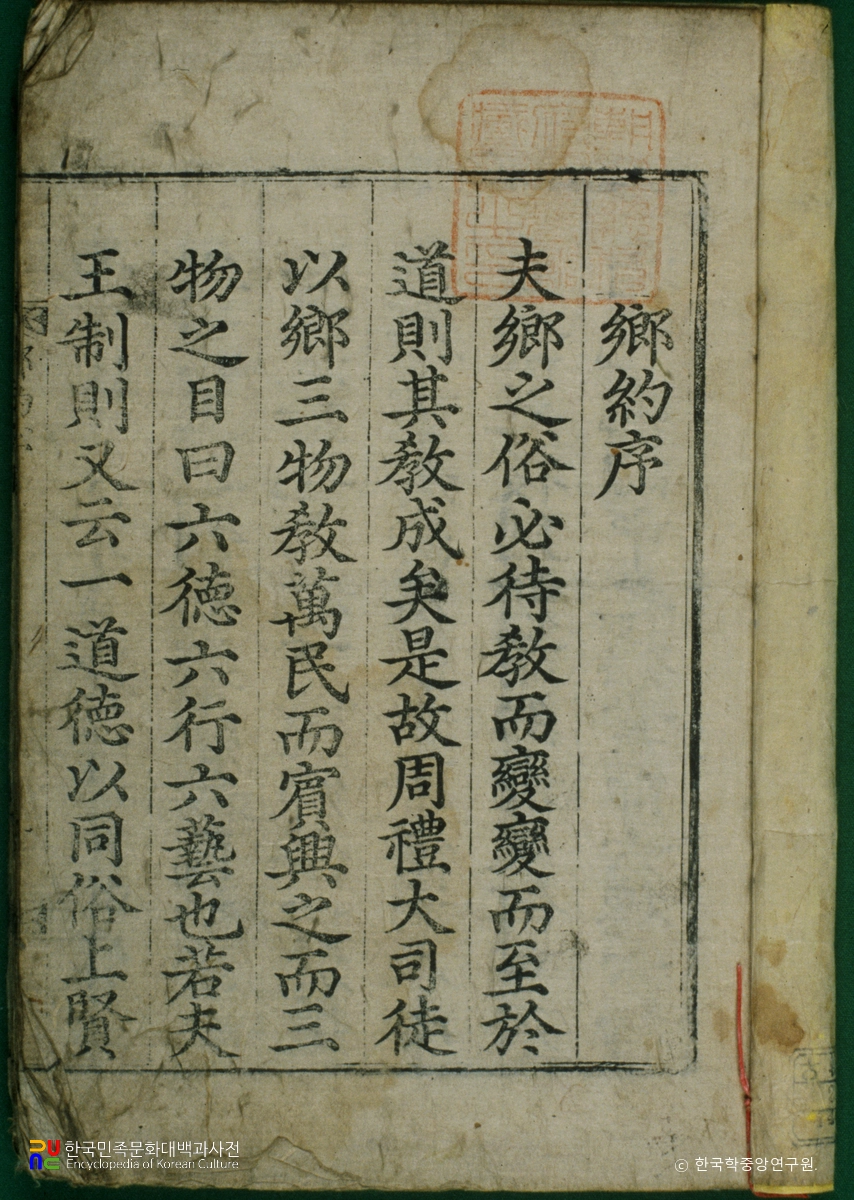 鄉約序
夫鄉之俗必待敎而變變而至於
道則其敎成矣是故周禮大司徒
以鄉三物敎萬民而賓興之而三
物之目曰六德六行六藝也若夫
王制則又云一道德以同俗上賢
한국민족문화대백과사전
Encyclopedia of Korean Culture
© 한국학중앙연구원.